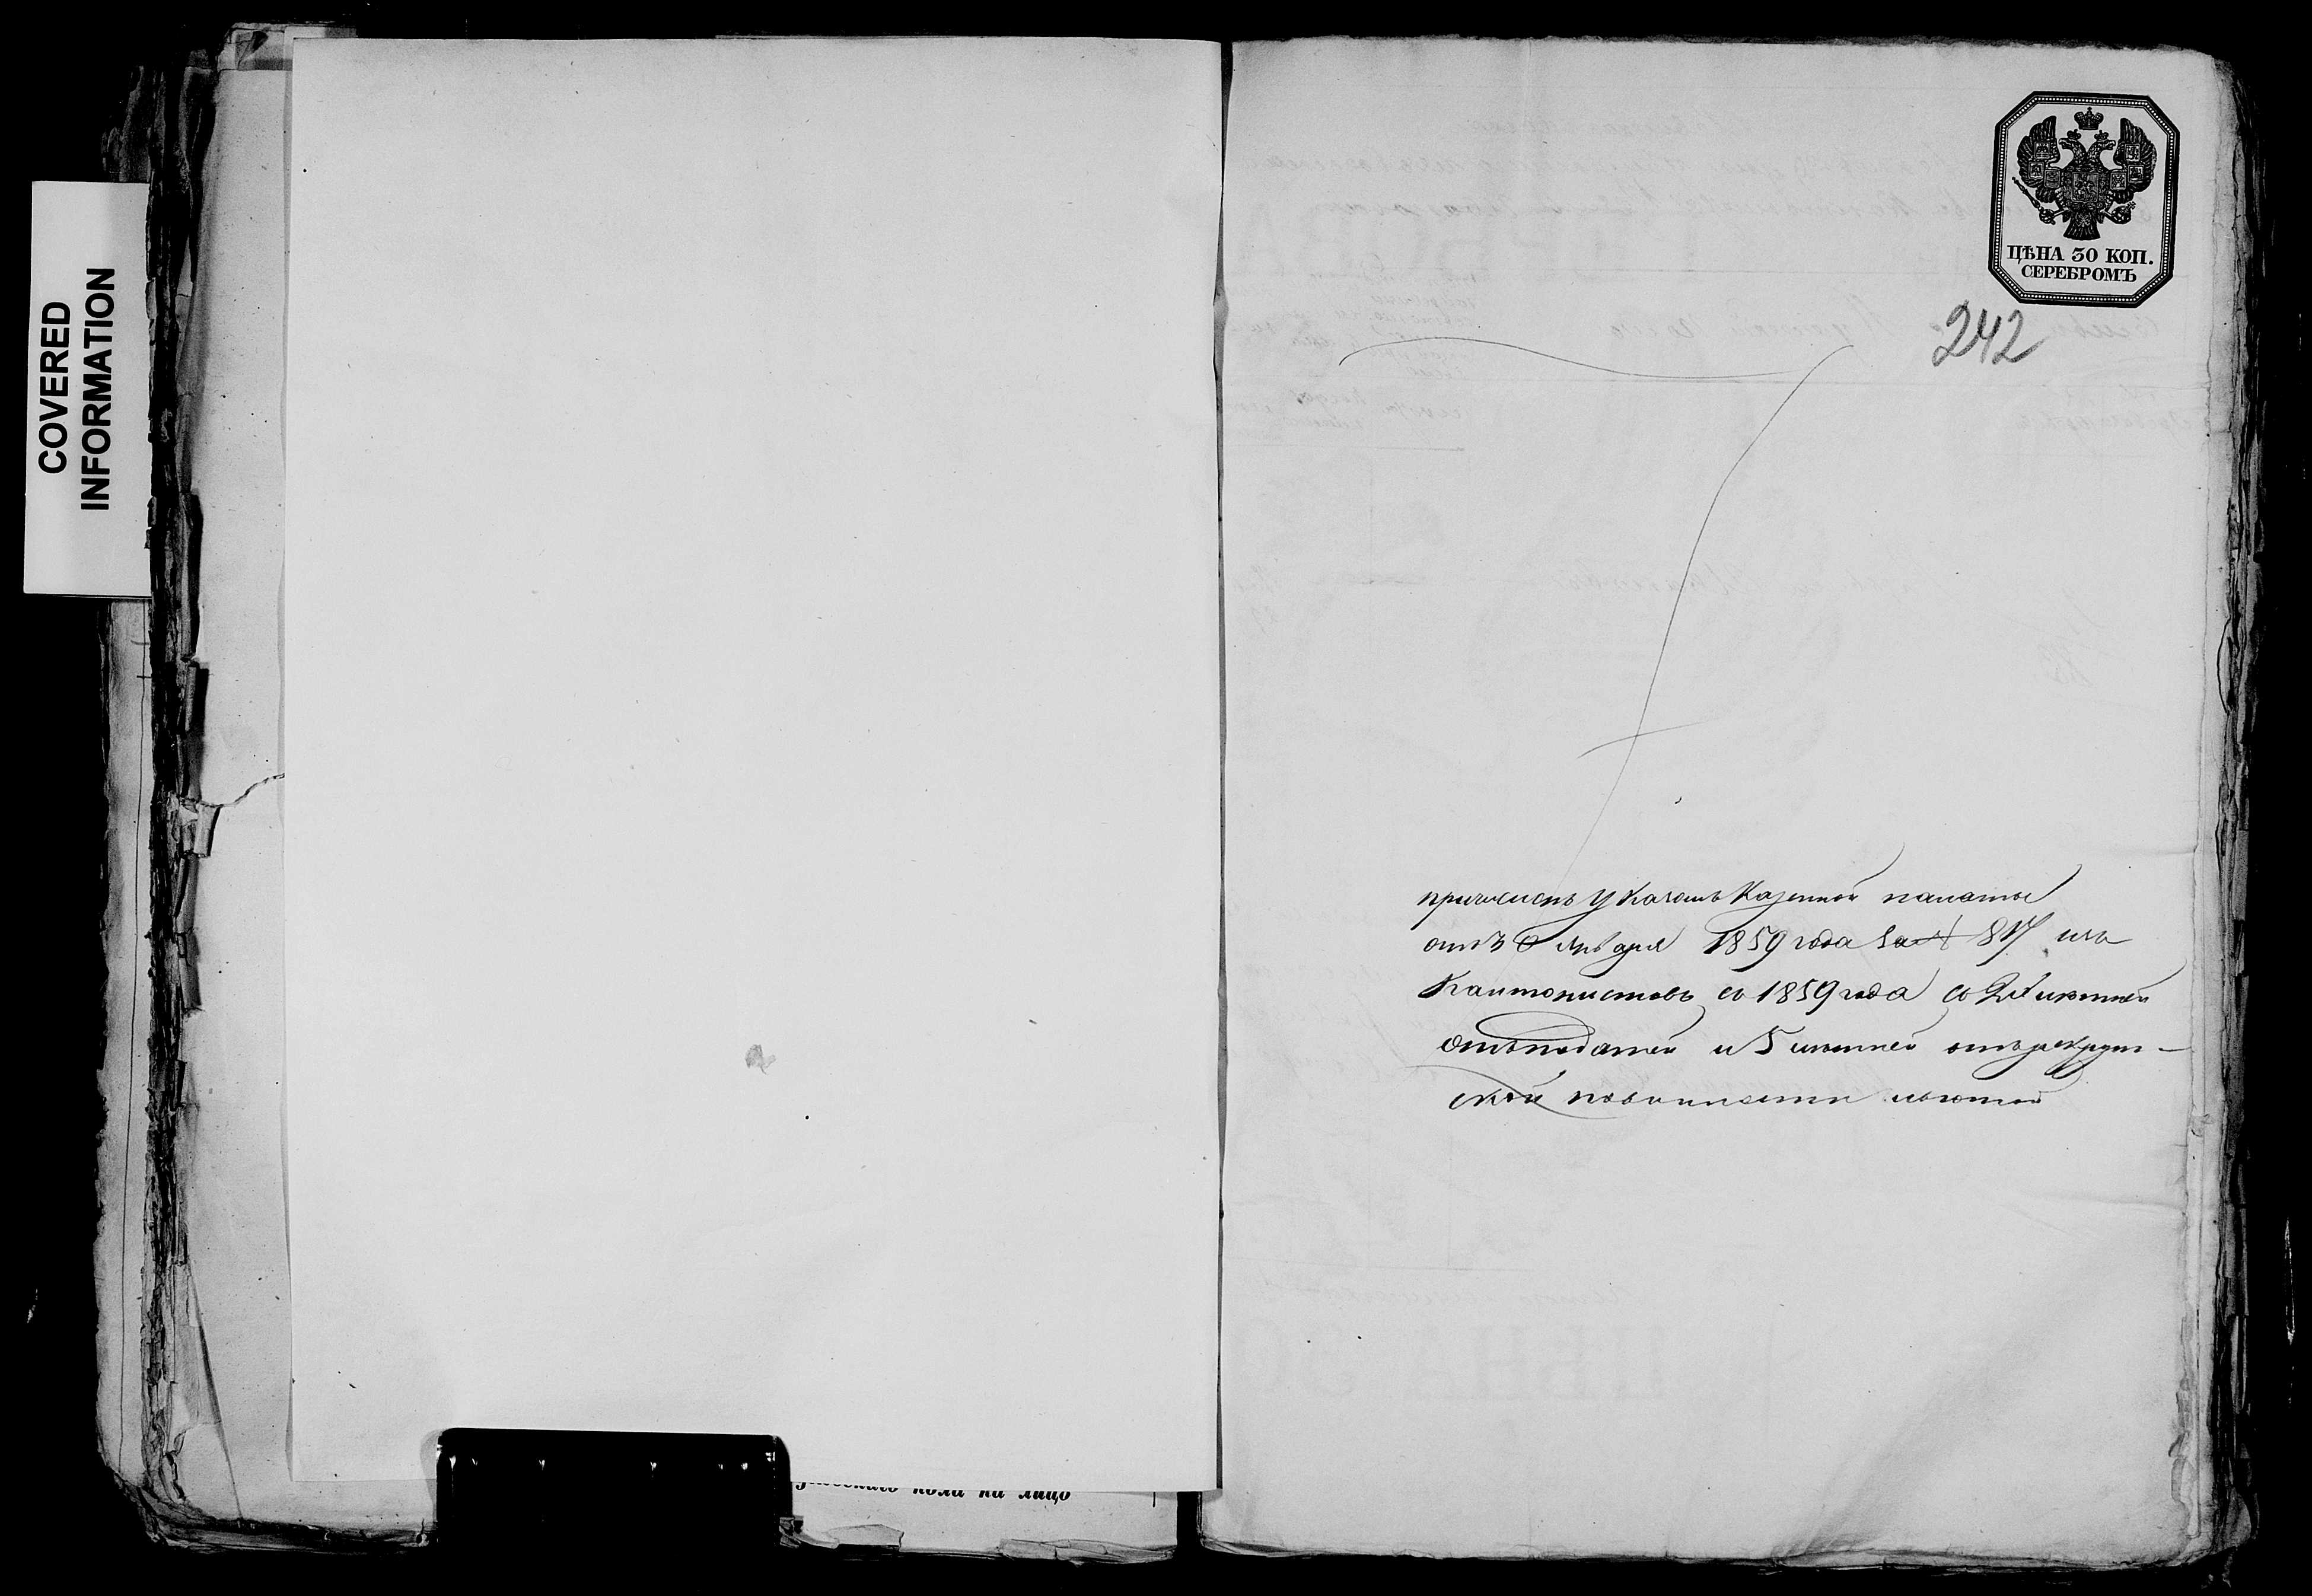 COVERED
INFORMATION
ЦѢНА 30 КОП.
СЕРЕБРОМЪ
242
причисленъ Указомъ Казенной палаты
отъ 8 Января 1859 года за № 817 изъ
Кантонистовъ съ 1859 года съ лѣтней
отъ податей и 5 лѣтней отъ рекрут-
ской повинности льготой
каго пола на лицо